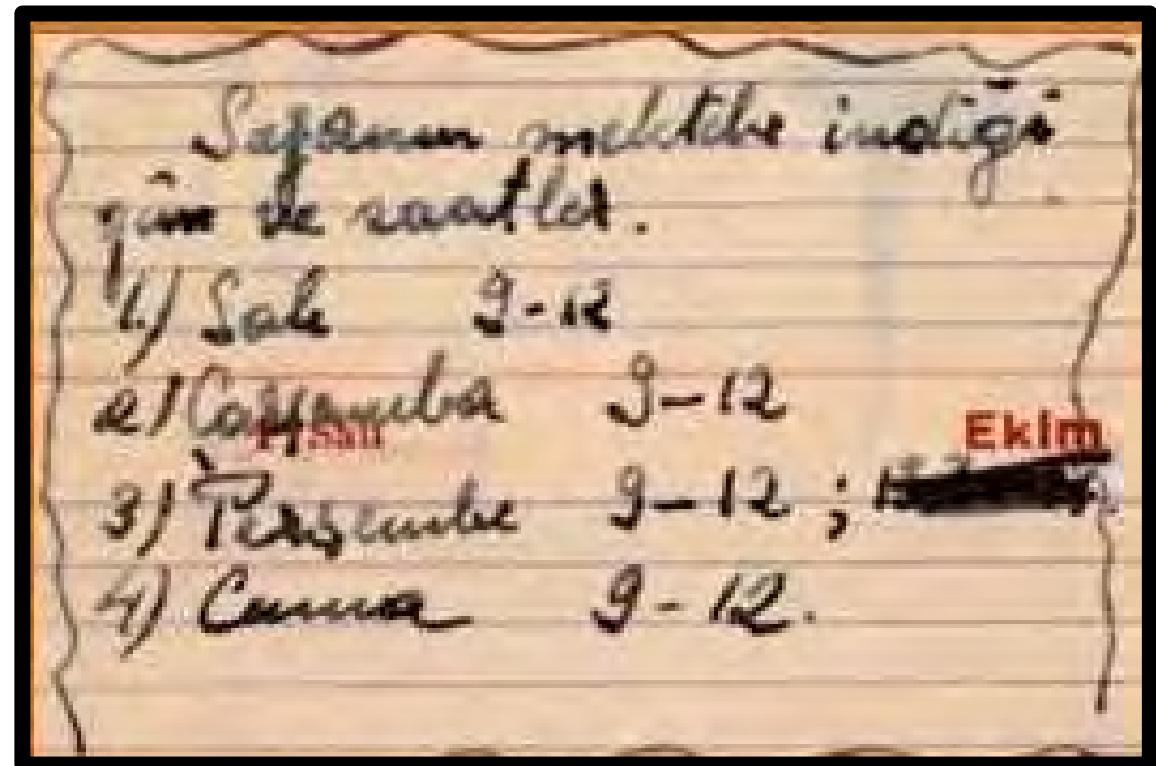 mektebe indiği
gün ve saatler.
1) Salı 9-12
2) Çarşamba 9-12
Ekim
3) Perşembe 9-12 ;
4) Cuma 9-12.